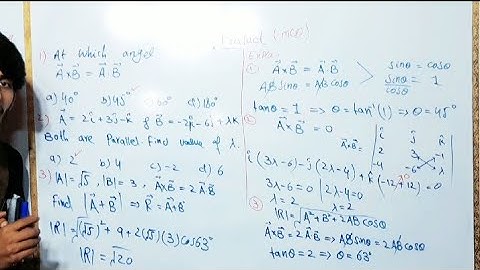 1) At which angel
A⃗xB⃗ = A⃗.B⃗
a) 40° b) 45° c) 90° d) 180°
2) A⃗ = 2î+3ĵ-k̂ & B⃗ = -4î-6ĵ+λk̂
Both are Parallel. Find value of λ.
a) 2 b) 4 c) -2 d) 6
3) |A⃗| = √5, |B⃗| = 3, A⃗xB⃗ = 2A⃗.B⃗
Find |A⃗+B⃗| ⇒ R⃗ = A⃗+B⃗
|R| = √(√5)² + 9 + 2(√5)(3)Cos63°
|R| = √20
(MCQ)
① A⃗xB⃗ = A⃗.B⃗
AB Sinθ = AB Cosθ
sinθ = cosθ
sinθ/cosθ = 1
tanθ = 1 ⇒ θ = tan⁻¹(1) ⇒ θ = 45°
② A⃗xB⃗ = 0
A⃗xB⃗ =
î ĵ k̂
2 3 -1
-4 -6 λ
î(3λ-6) - ĵ(2λ-4) + k̂(-12+12) = 0
3λ-6=0 | 2λ-4=0
λ=2 | λ=2
③ |R| = √A²+B²+2AB Cosθ
A⃗xB⃗ = 2A⃗.B⃗ ⇒ AB Sinθ = 2AB Cosθ
tanθ = 2 ⇒ θ = 63°